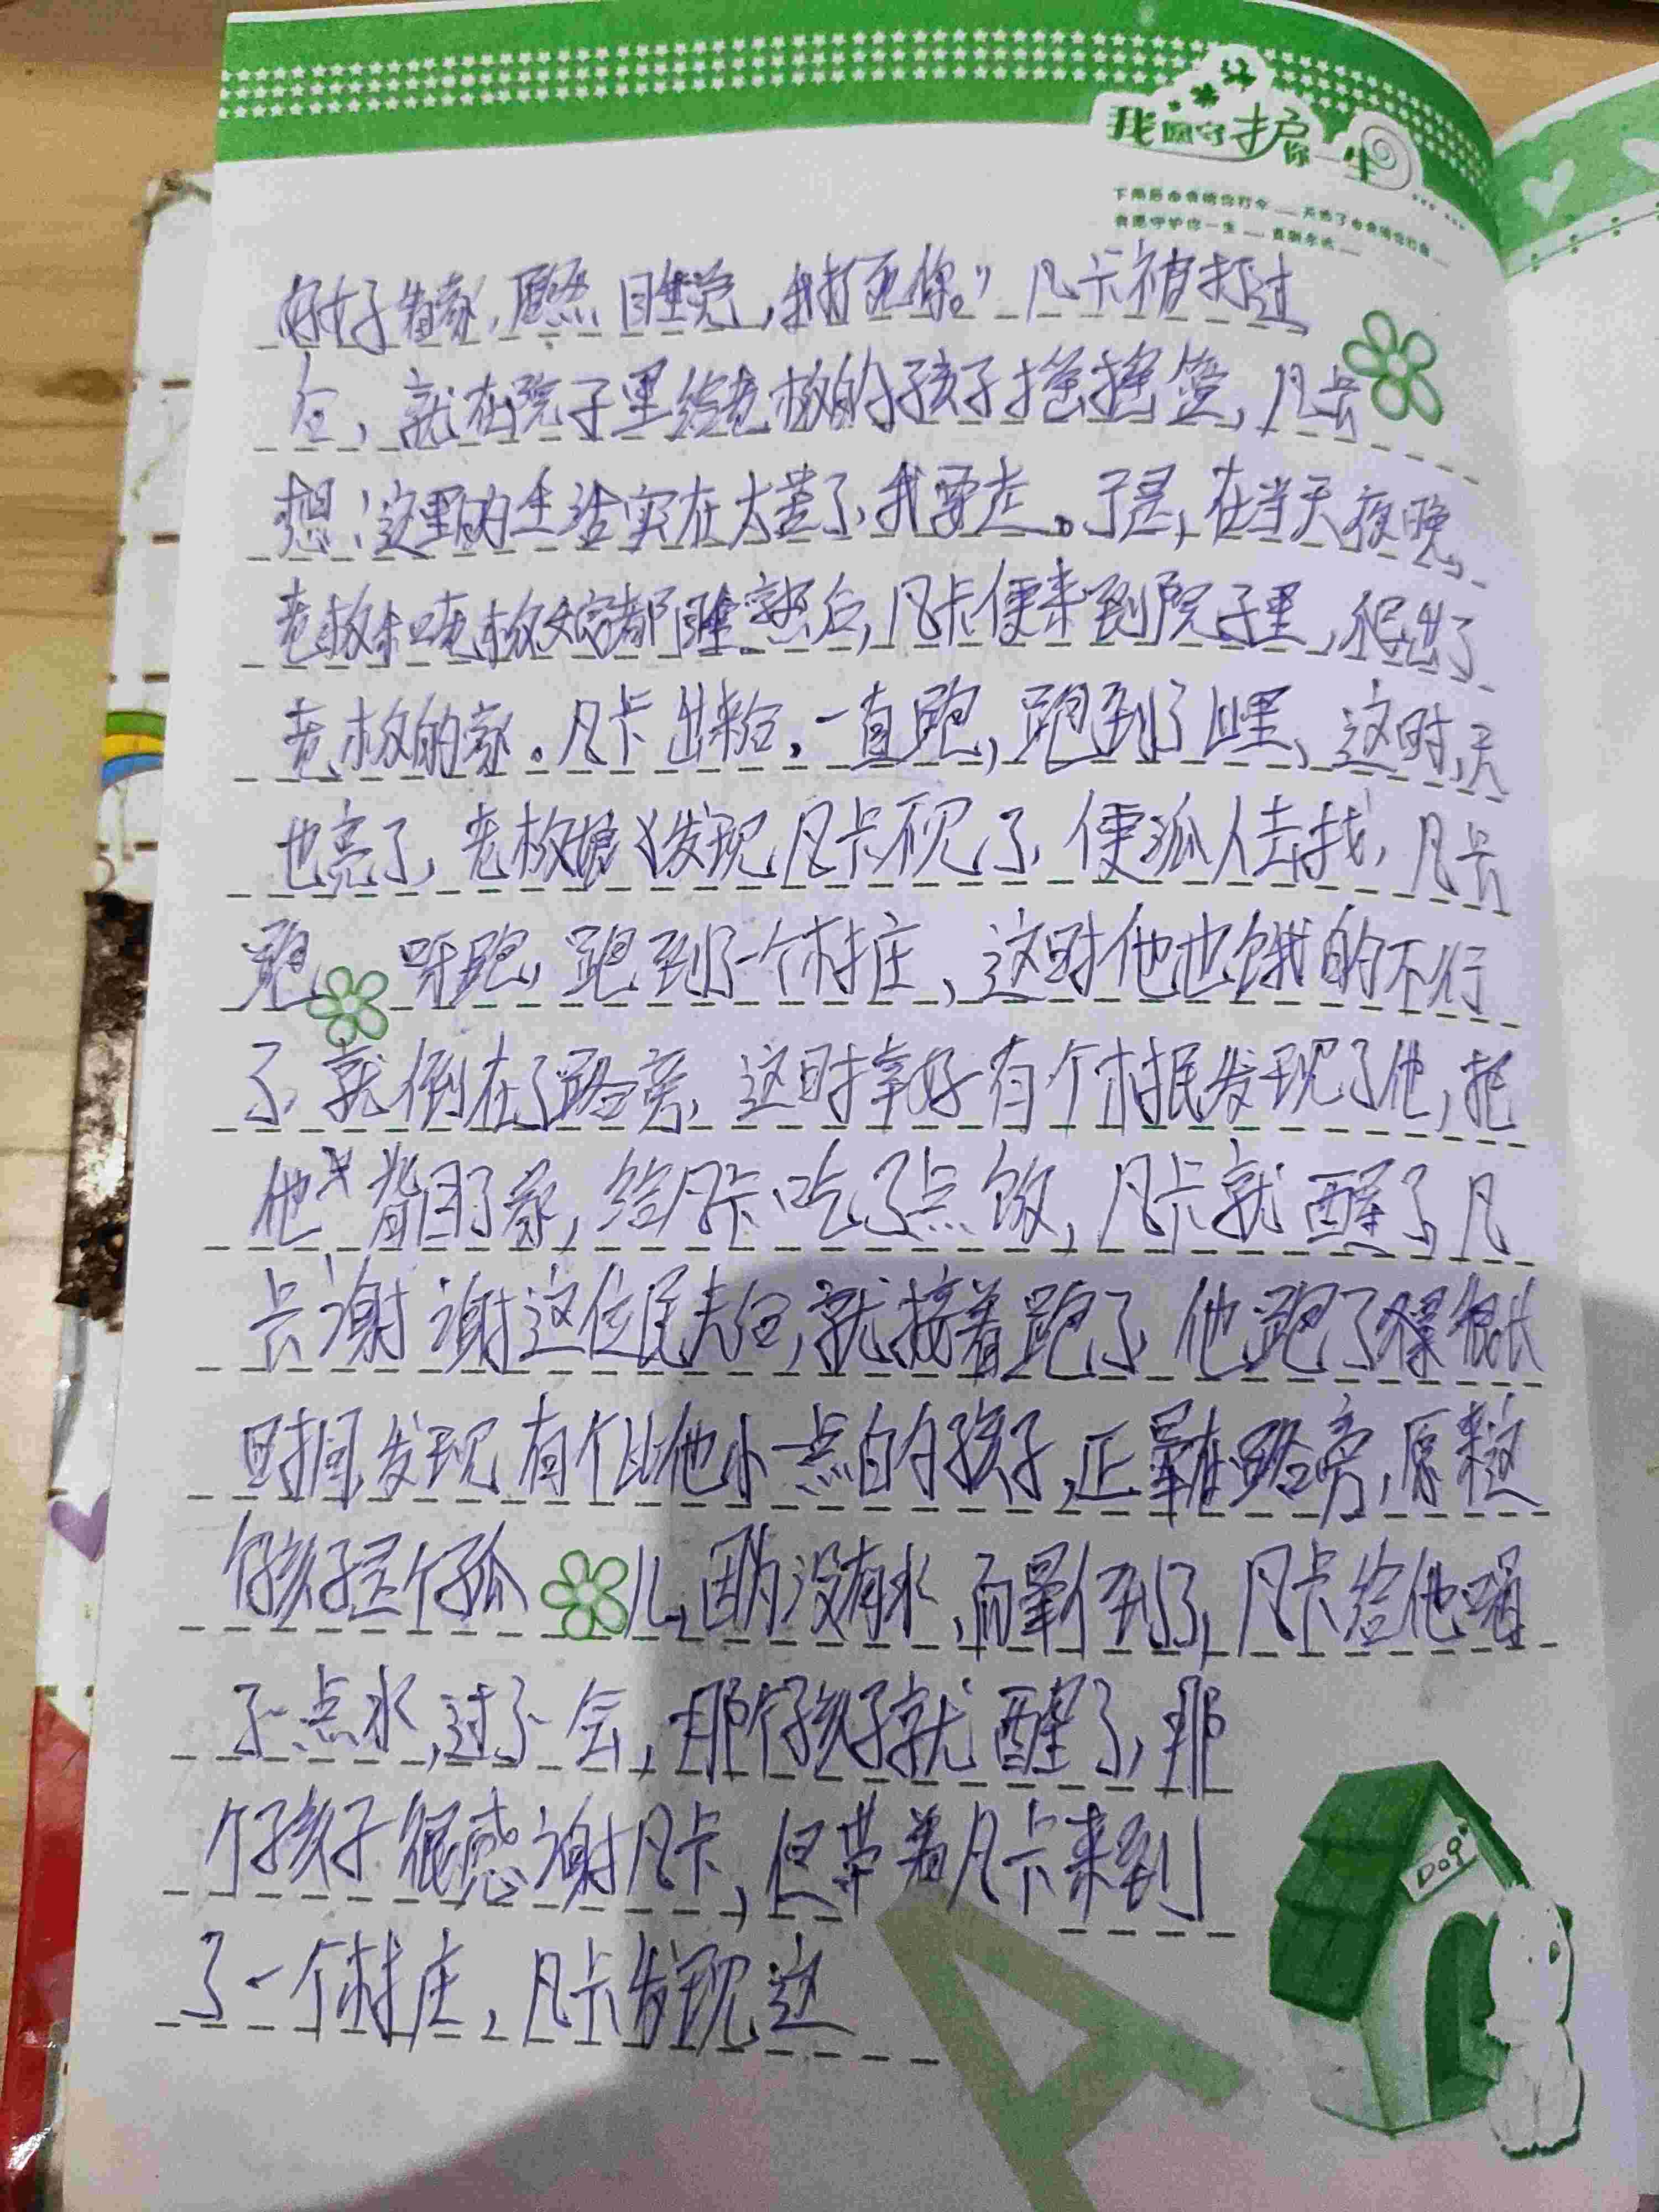 我愿守护你一生
好好看家，居然睡觉，我打死你。”凡卡被打过
后，就在院子里给老板的孩子摇摇篮，凡卡
想：这里的生活实在太苦了，我要走。于是，在当天夜晚
老板和老板娘都睡熟后，凡卡便来到院子里，爬出了
老板的家。凡卡出来后，一直跑，跑到了山里、这时，天
也亮了，老板娘发现凡卡不见了，便派人去找，凡卡
跑呀跑，跑到了一个村庄，这时他也饿的不行
了，就倒在了路旁，这时幸好有个村民发现了他，把
他背回了家，给凡卡吃了点饭，凡卡就醒了，凡
卡谢谢这位民夫后，就接着跑了，他跑了很长
时间，发现有个比他小一点的孩子，正晕在路旁，原来这
个孩子是个孤儿，因为没有水，而晕倒了，凡卡给他喝
了一点水，过了一会，那个孩子就醒了，那
个孩子很感谢凡卡，但带着凡卡来到
了一个村庄，凡卡发现这
DOG